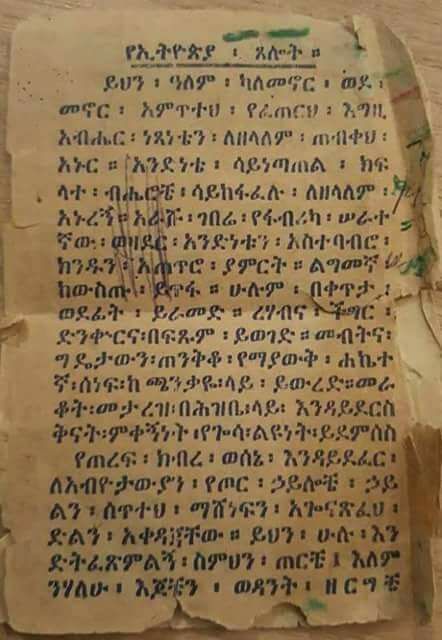 የኢትዮጵያ ፡ ጸሎት ።
ይህን ፡ ዓለም ፡ ካለመኖር ፡ ወደ
መኖር ፡ አምጥተህ ፡ የፈጠርህ ፡ እግዚ
አብሔር ፡ ነጻነቴን ፡ ለዘላለም ፡ ጠብቀህ ፡
አኑር ። አንድነቴ ፡ ሳይነጣጠል ፡ ክፍ
ላተ ፡ ብሔሮቼ ፡ ሳይከፋፈሉ ፡ ለዘላለም ፡
አኑረኝ ። አራሹ ፡ ገበሬ ፡ የፋብሪካ ፡ ሠራተ
ኛው ፡ ወዛደር ፡ አንድነቴን ፡ አስተባብሮ ፡
ክንዱን ፡ አጠጥሮ ፡ ያምርት ። ልግመኛ ፡
ከውስጡ ፡ ይጥፋ ። ሁሉም ፡ በቀጥታ ፡
ወደፊት ፡ ይራመድ ። ረሃብና ፡ ችግር ፡
ድንቍርና ፡ በፍጹም ፡ ይወገድ ። መብትና ፡
ግዴታውን ፡ ጠንቅቆ ፡ የማያውቅ ፡ ሐኬተ
ኛ ፡ ሰነፍ ፡ ከ ጫንቃዬ ፡ ላይ ፡ ይውረድ ። መራ
ቆት ፡ መታረዝ ፡ በሕዝቤ ፡ ላይ ፡ እንዳይደርስ
ቅናት ፡ ምቀኝነት ፡ የጐሳ ፡ ልዩነት ፡ ይደምሰስ
የጠረፍ ፡ ክብረ ፡ ወሰኔ ፡ እንዳይደፈር ፡
ለአብዮታውያን ፡ የጦር ፡ ኃይሎቼ ፡ ኃይ
ልን ፡ ሰጥተህ ፡ ማሸነፍን ፡ አጐናጽፈህ ፡
ድልን ፡ አቀዳጃቸው ። ይህን ፡ ሁሉ ፡ እን
ድትፈጽምልኝ ፡ ስምህን ፡ ጠርቼ ፤ እለም
ንሃለሁ ፡ እጆቼን ፡ ወዳንት ፡ ዘርግቼ